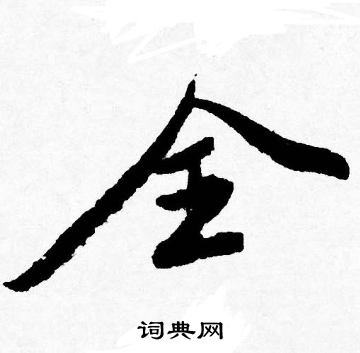 全
词典网